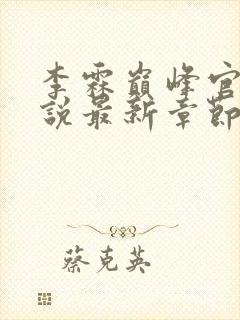 李霖巅峰官
說最新章節
蔡克英